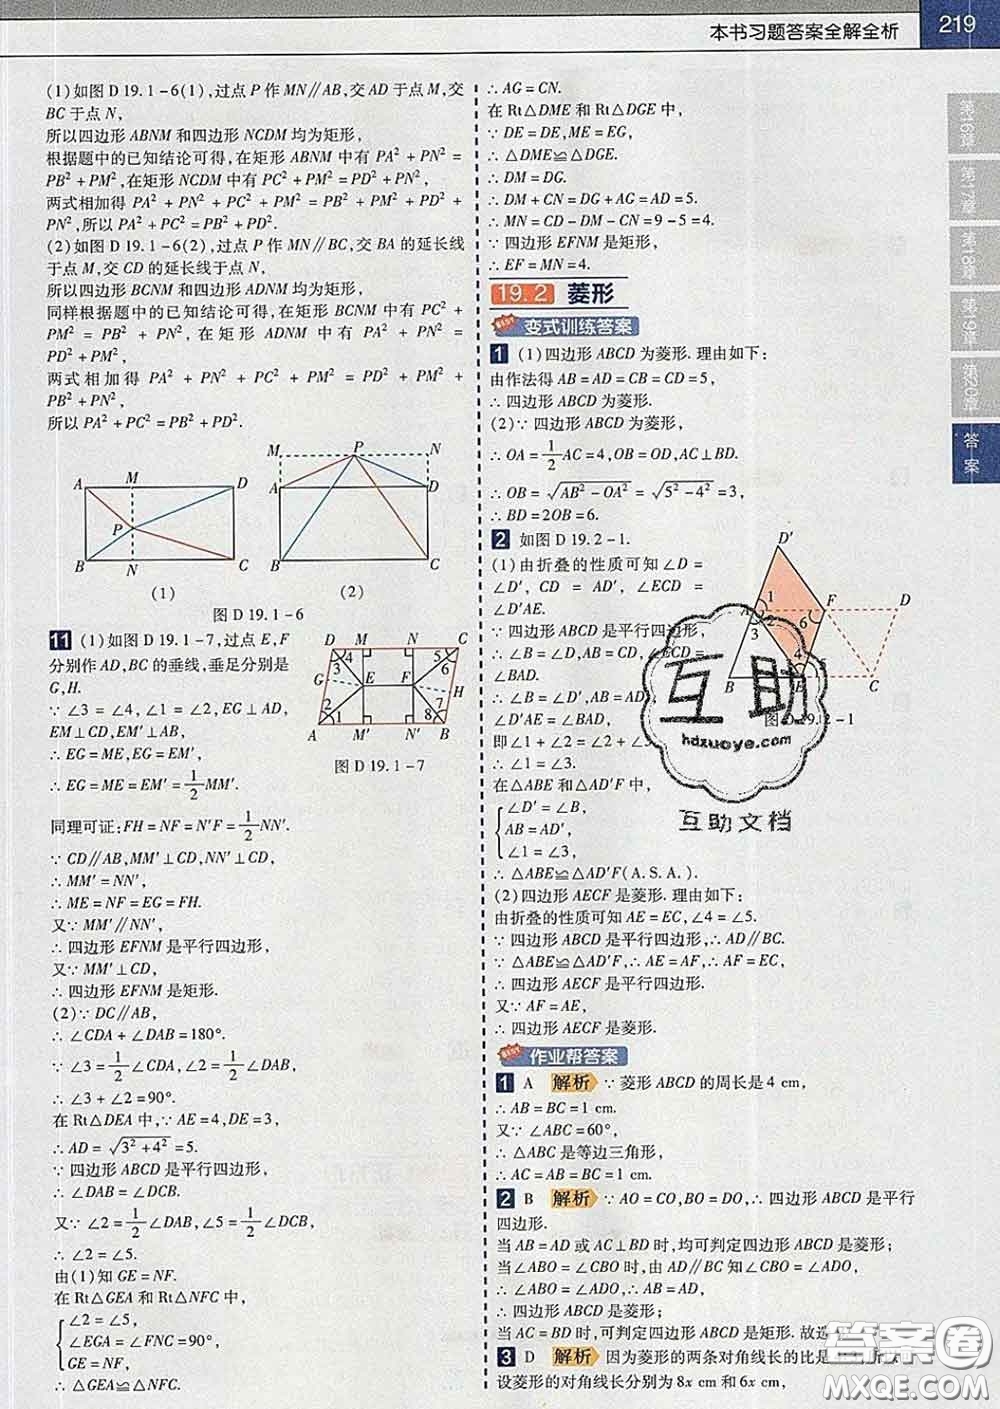 本书习题答案全解全析 219
(1)如图 D 19.1-6(1),过点 P 作 MN∥AB,交 AD 于点 M,交
BC 于点 N,
所以四边形 ABNM 和四边形 NCDM 均为矩形,
根据题中的已知结论可得,在矩形 ABNM 中有 PA² + PN² =
PB² + PM²,在矩形 NCDM 中有 PC² + PM² = PD² + PN²,
两式相加得 PA² + PN² + PC² + PM² = PB² + PM² + PD² +
PN²,所以 PA² + PC² = PB² + PD².
(2)如图 D 19.1-6(2),过点 P 作 MN∥BC,交 BA 的延长线
于点 M,交 CD 的延长线于点 N,
所以四边形 BCNM 和四边形 ADNM 均为矩形,
同样根据题中的已知结论可得,在矩形 BCNM 中有 PC² +
PM² = PB² + PN²,在矩形 ADNM 中有 PA² + PN² =
PD² + PM²,
两式相加得 PA² + PN² + PC² + PM² = PD² + PM² +
PB² + PN²,
所以 PA² + PC² = PB² + PD².
A M D
P
B N C
(1)
M P N
A D
B C
(2)
图 D 19.1-6
11 (1)如图 D 19.1-7,过点 E,F
分别作 AD,BC 的垂线,垂足分别是
G,H.
∵ ∠3 = ∠4,∠1 = ∠2,EG⊥AD,
EM⊥CD,EM′⊥AB,
∴ EG = ME,EG = EM′.
∴ EG = ME = EM′ = 1/2 MM′.
同理可证:FH = NF = N′F = 1/2 NN′.
∵ CD∥AB,MM′⊥CD,NN′⊥CD,
∴ MM′ = NN′,
∴ ME = NF = EG = FH.
又∵ MM′∥NN′,
∴ 四边形 EFNM 是平行四边形,
又∵ MM′⊥CD,
∴ 四边形 EFNM 是矩形.
(2)∵ DC∥AB,
∴ ∠CDA + ∠DAB = 180°.
∵ ∠3 = 1/2 ∠CDA,∠2 = 1/2 ∠DAB,
∴ ∠3 + ∠2 = 90°.
在 Rt△DEA 中,∵ AE = 4,DE = 3,
∴ AD = √(3² + 4²) = 5.
∵ 四边形 ABCD 是平行四边形,
∴ ∠DAB = ∠DCB,
又∵ ∠2 = 1/2 ∠DAB,∠5 = 1/2 ∠DCB,
∴ ∠2 = ∠5.
由(1)知 GE = NF.
在 Rt△GEA 和 Rt△NFC 中,
∠2 = ∠5,
∠EGA = ∠FNC = 90°,
GE = NF,
∴ △GEA≌△NFC,
D M N C
3 4 5 6
G E F H
2 1 7 8
A M′ N′ B
图 D 19.1-7
∴ AG = CN.
在 Rt△DME 和 Rt△DGE 中,
∵ DE = DE,ME = EG,
∴ △DME≌△DGE.
∴ DM = DG.
∴ DM + CN = DG + AG = AD = 5.
∴ MN = CD - DM - CN = 9 - 5 = 4.
∵ 四边形 EFNM 是矩形,
∴ EF = MN = 4.
19.2 菱形
变式训练答案
1 (1)四边形 ABCD 为菱形. 理由如下:
由作法得 AB = AD = CB = CD = 5,
∴ 四边形 ABCD 为菱形.
(2)∵ 四边形 ABCD 为菱形,
∴ OA = 1/2 AC = 4,OB = OD,AC⊥BD.
∴ OB = √(AB² - OA²) = √(5² - 4²) = 3,
∴ BD = 2OB = 6.
2 如图 D 19.2-1.
(1)由折叠的性质可知∠D =
∠D′, CD = AD′, ∠ECD =
∠D′AE.
∵ 四边形 ABCD 是平行四边形,
∴ ∠B = ∠D,AB = CD,∠ECD =
∠BAD.
∴ ∠B = ∠D′,AB = AD′,
即∠1 + ∠2 = ∠2 +
∴ ∠1 = ∠3.
在△ABE 和△AD′F 中,
∠D′ = ∠B,
AB = AD′,
∠1 = ∠3,
∴ △ABE≌△AD′F(A.S.A.).
(2)四边形 AECF 是菱形. 理由如下:
由折叠的性质可知 AE = EC,∠4 = ∠5.
∵ 四边形 ABCD 是平行四边形,∴ AD∥BC.
∵ △ABE≌△AD′F,∴ AE = AF,∴ AF = EC,
∴ 四边形 AECF 是平行四边形.
又∵ AF = AE,
∴ 四边形 AECF 是菱形.
D′
A 1 2 3 F D
6
4
B C
图 D 19.2-1
作业帮答案
1 A 解析 ∵ 菱形 ABCD 的周长是 4 cm,
∴ AB = BC = 1 cm.
又∵ ∠ABC = 60°,
∴ △ABC 是等边三角形,
∴ AC = AB = BC = 1 cm.
2 B 解析 ∵ AO = CO,BO = DO,∴ 四边形 ABCD 是平行
四边形.
当 AB = AD 或 AC⊥BD 时,均可判定四边形 ABCD 是菱形;
当∠ABO = ∠CBO 时,由 AD∥BC 知∠CBO = ∠ADO,
∴ ∠ABO = ∠ADO,∴ AB = AD,
∴ 四边形 ABCD 是菱形;
当 AC = BD 时,可判定四边形 ABCD 是矩形. 故选
3 D 解析 因为菱形的两条对角线长的比是
设菱形的对角线长分别为 8x cm 和 6x cm,
第16章
第17章
第18章
第19章
第20章
答案
互助
hdzuoye.com
互助文档
答案圈
MXQE.COM